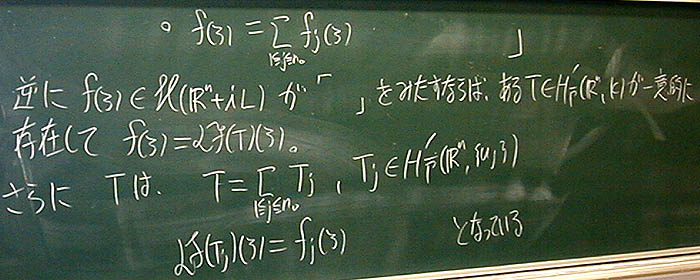 。 f(ζ) = Σ_{1≤j≤n₀} f_j(ζ) 」
逆に f(ζ) ∈ 𝓗(ℝⁿ+iL) が「 」をみたすならば、ある T∈H'_P(ℝⁿ, K) が一意的に
存在して f(ζ)=𝓛𝓕(T)(ζ)。
さらに Tは、 T = Σ_{1≤j≤n₀} T_j , T_j ∈ H'_P(ℝⁿ, {u_j})
𝓛𝓕(T_j)(ζ) = f_j(ζ) となっている